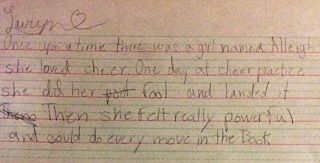 Jauryn
Once upon a time there was a girl named Alleigh
she loved cheer. One day at cheer practice
she did her fool and landed it
Then she felt really powerful
and could do every move in the Book